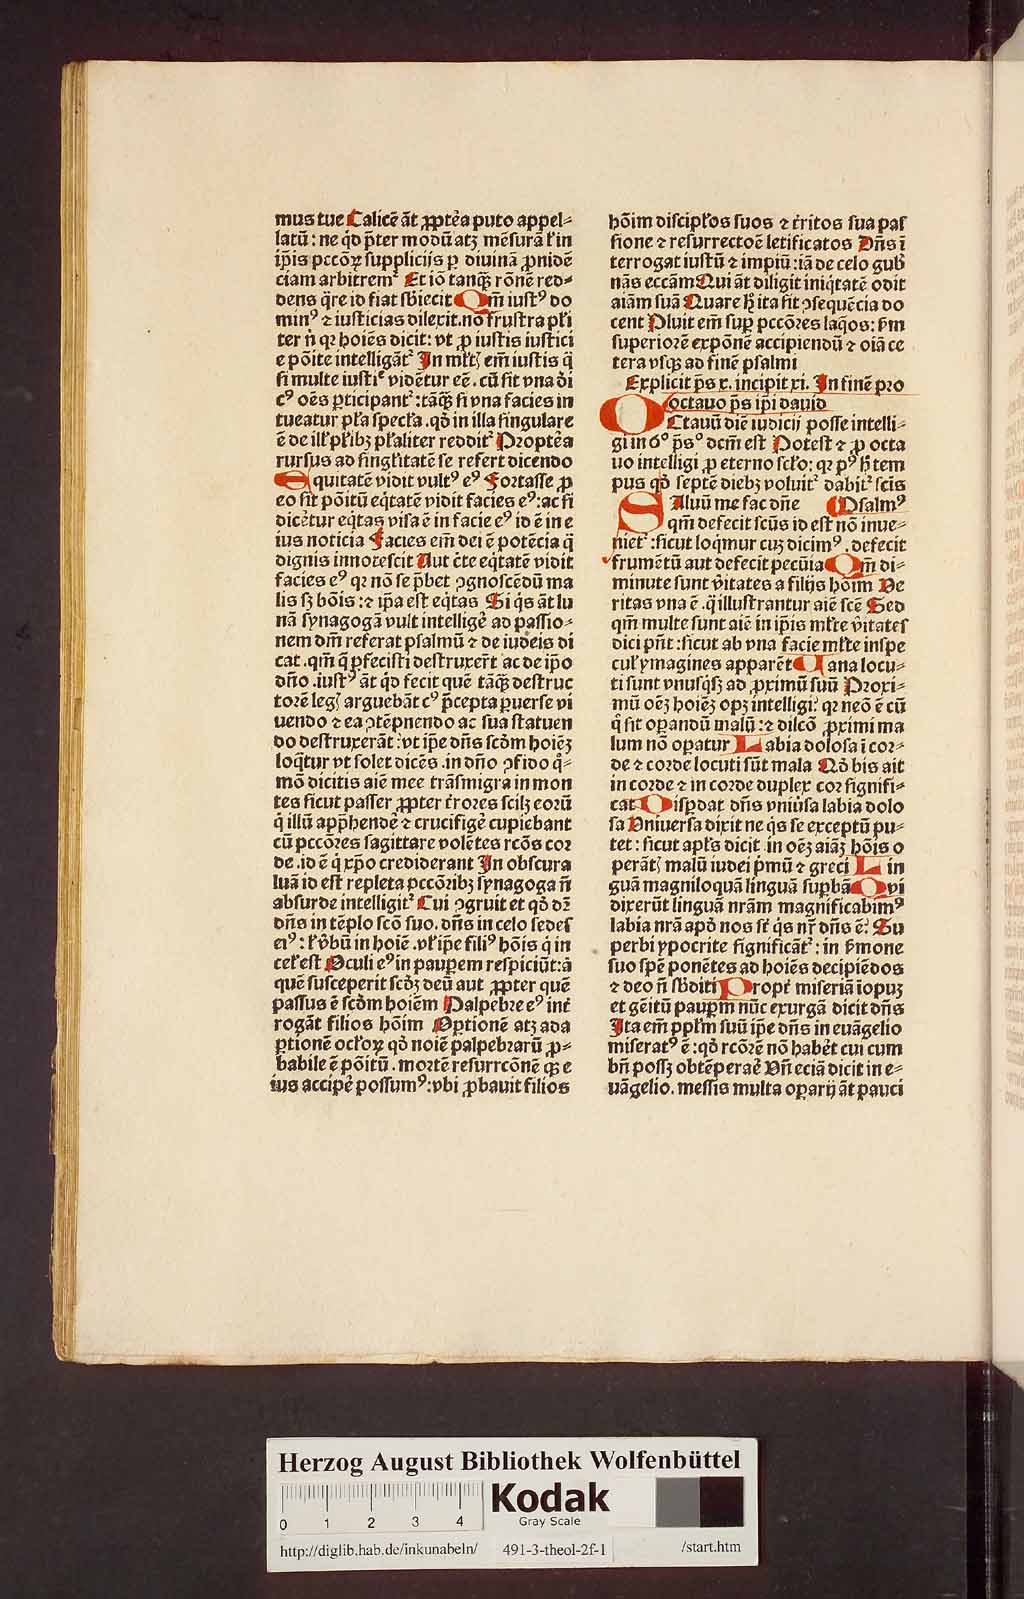 mus tue Calicē āt ꝓpteᷓa puto appel⸗
latū : ne qᷓd p̄ter modū atꝫ mēsurā ł in
ip̄is pccōꝝ supplicijs ꝑ diuinā ꝓuidē
ciam arbitremᷓ Et iō tanqꝫ rōnē red⸗
dens q̄re id fiat sb̄iecit Qm̄ iustꝰ do
minꝰ ⁊ iusticias dilexit. nō frustra pr̄i
ter n̄ qꝛ hoīes dicit: vt ꝓ iustis iustici
e pōite intelligātᷓ In mł̄tꝭ em̄ iustis q̄
si multe iustiᷓ vidētur eē. cū sit vna di
cꝰ oēs ꝑticipantᷓ: tāqꝫ si vna facies in
tueatur pła specła. qd̄ in illa singulare
ē de ill̄ pł̄ibꝫ pł̄aliter redditᷓ Proptēa
rursus ad singł̄itatē se refert dicendo
Equitatē vidit vultꝰ eꝰ Fortasse ꝓ
eo sit pōitū eq̄tatē vidit facies eꝰ: ac si
dicētur eq̄tas visa ē in facie eꝰ id ē in e
ius noticia Facies em̄ dei ē potēcia q̄
dignis innotescit Aut c̄te eq̄tatē vidit
facies eꝰ qꝛ nō se p̄bet ꝯgnoscēdū ma
lis sꝫ bōis: ⁊ ip̄a est eq̄tas Si q̄s āt lu
nā synagogā vult intelligē ad passio⸗
nem dn̄i referat psalmū ⁊ de iudeis di
cat. qm̄ q̄ ꝑfecisti destruxer̄t ac de ip̄o
dn̄o. iustꝰ āt qd̄ fecit quē tāqꝫ destruc
torē legꝭ arguebāt cꝰ p̄cepta ꝑuerse vi
uendo ⁊ ea ꝯtēpnendo ac sua statuen
do destruxerāt: vt ip̄e dn̄s scd̄m hoīeꝫ
loq̄tur vt solet dicēs. in dn̄o ꝯfido q̄⸗
mō dicitis aīe mee trāsmigra in mon
tes sicut passer ꝓpter t̄rores scilꝫ eorū
q̄ illū app̄hendē ⁊ crucifigē cupiebant
cū pccōres sagittare volētes rcōs cor
de. id ē q̄ xp̄o crediderant In obscura
luā id est repleta pccōribꝫ synagoga n̄
absurde intelligitᷓ Cui ꝯgruit et qd̄ dꝫ
dn̄s in tēplo scō suo. dn̄s in celo sedes
eiꝰ: ł v̄bū in hoīe. vł ip̄e filiꝰ hōis q̄ in
cel̄ est Oculi eꝰ in pauꝑem respiciūt: ā
quē susceperit scd̄ꝫ deū aut ꝓpter quē
passus ē scd̄m hoīem Palpebre eꝰ int̄
rogāt filios hōim Optionē atꝫ ada
ꝑtionē ocłoꝝ qd̄ noīe palpebrarū ꝓ⸗
babile ē pōitū. mortē resurrcōnē qꝫ e
ius accipē possumꝰ: vbi ꝓbauit filios
hōim discipłos suos ⁊ t̄ritos sua pas
sione ⁊ resurrectoē letificatos Dn̄s ī
terrogat iustū ⁊ impiū: iā de celo gub̄
nās eccām Qui āt diligit iniq̄tatē odit
aīam suā Quare hꝭ ita sit ꝯsequēcia do
cent Pluit em̄ sup̄ pccōres laq̄os: s̄m
superiorē expōnē accipiendū ⁊ oīa ce
tera vsqꝫ ad finē psalmi
Explicit p̄s x. incipit xi. In finē pro
octauo p̄s ip̄i dauid
OCtauū diē iudicij posse intelli⸗
gi in 6ꝰ p̄sꝰ dcm̄ est Potest ⁊ ꝓ octa
uo intelligi ꝓ eterno scło: qꝛ pꝰ h̄ tem
pus qd̄ septē diebꝫ voluitᷓ dabitᷓ scis
SAluū me fac dn̄e Psalmꝰ
qm̄ defecit scūs id est nō inue⸗
nietᷓ: sicut loq̄mur cuꝫ dicimꝰ. defecit
frumētū aut defecit pecūia Qm̄ di⸗
minute sunt v̄itates a filijs hōim Ve
ritas vna ē. q̄ illustrantur aīe scē Sed
qm̄ multe sunt aīe in ip̄is mł̄te v̄itates
dici pn̄t: sicut ab vna facie mł̄te inspe
cuł ymagines apparēt Uana locu⸗
ti sunt vnusq̄sꝫ ad ꝓximū suū Proxi⸗
mū oēꝫ hoīeꝫ opꝫ intelligi: qꝛ neō ē cū
q̄ sit oꝑandū malū: ⁊ dilcō ꝓximi ma
lum nō oꝑatur Labia dolosa ī cor⸗
de ⁊ corde locuti sūt mala Qd̄ bis ait
in corde ⁊ in corde duplex cor signifi⸗
cat Disꝑdat dn̄s vniūsa labia dolo
sa Vniuersa dixit ne q̄s se exceptū pu⸗
tet: sicut apł̄s dicit in oēꝫ aīaꝫ hōis o
perātꝭ malū iudei p̄mū ⁊ greci Lin
guā magniloquā linguā suꝑbā Qui
dixerūt linguā nrām magnificabimꝰ
labia nrā apd̄ nos st̄ q̄s nr̄ dn̄s ē: Su
perbi ypocrite significātᷓ: in s̄mone
suo spē ponētes ad hoīes decipiēdos
⁊ deo n̄ sb̄diti Propt̄ miseriā īopuꝫ
et gēitū pauꝑm nūc exurgā dicit dn̄s
Ita em̄ ppł̄m suū ip̄e dn̄s in euāgelio
miseratꝰ ē: qd̄ rcōrē nō habēt cui cum
bn̄ possꝫ obtēperaē Vn̄ eciā dicit in e⸗
uāgelio. messis multa oꝑarij āt pauci
Herzog August Bibliothek Wolfenbüttel
0 1 2 3 4
Kodak
Gray Scale
http://diglib.hab.de/inkunabeln/ 491-3-theol-2f-1 /start.htm